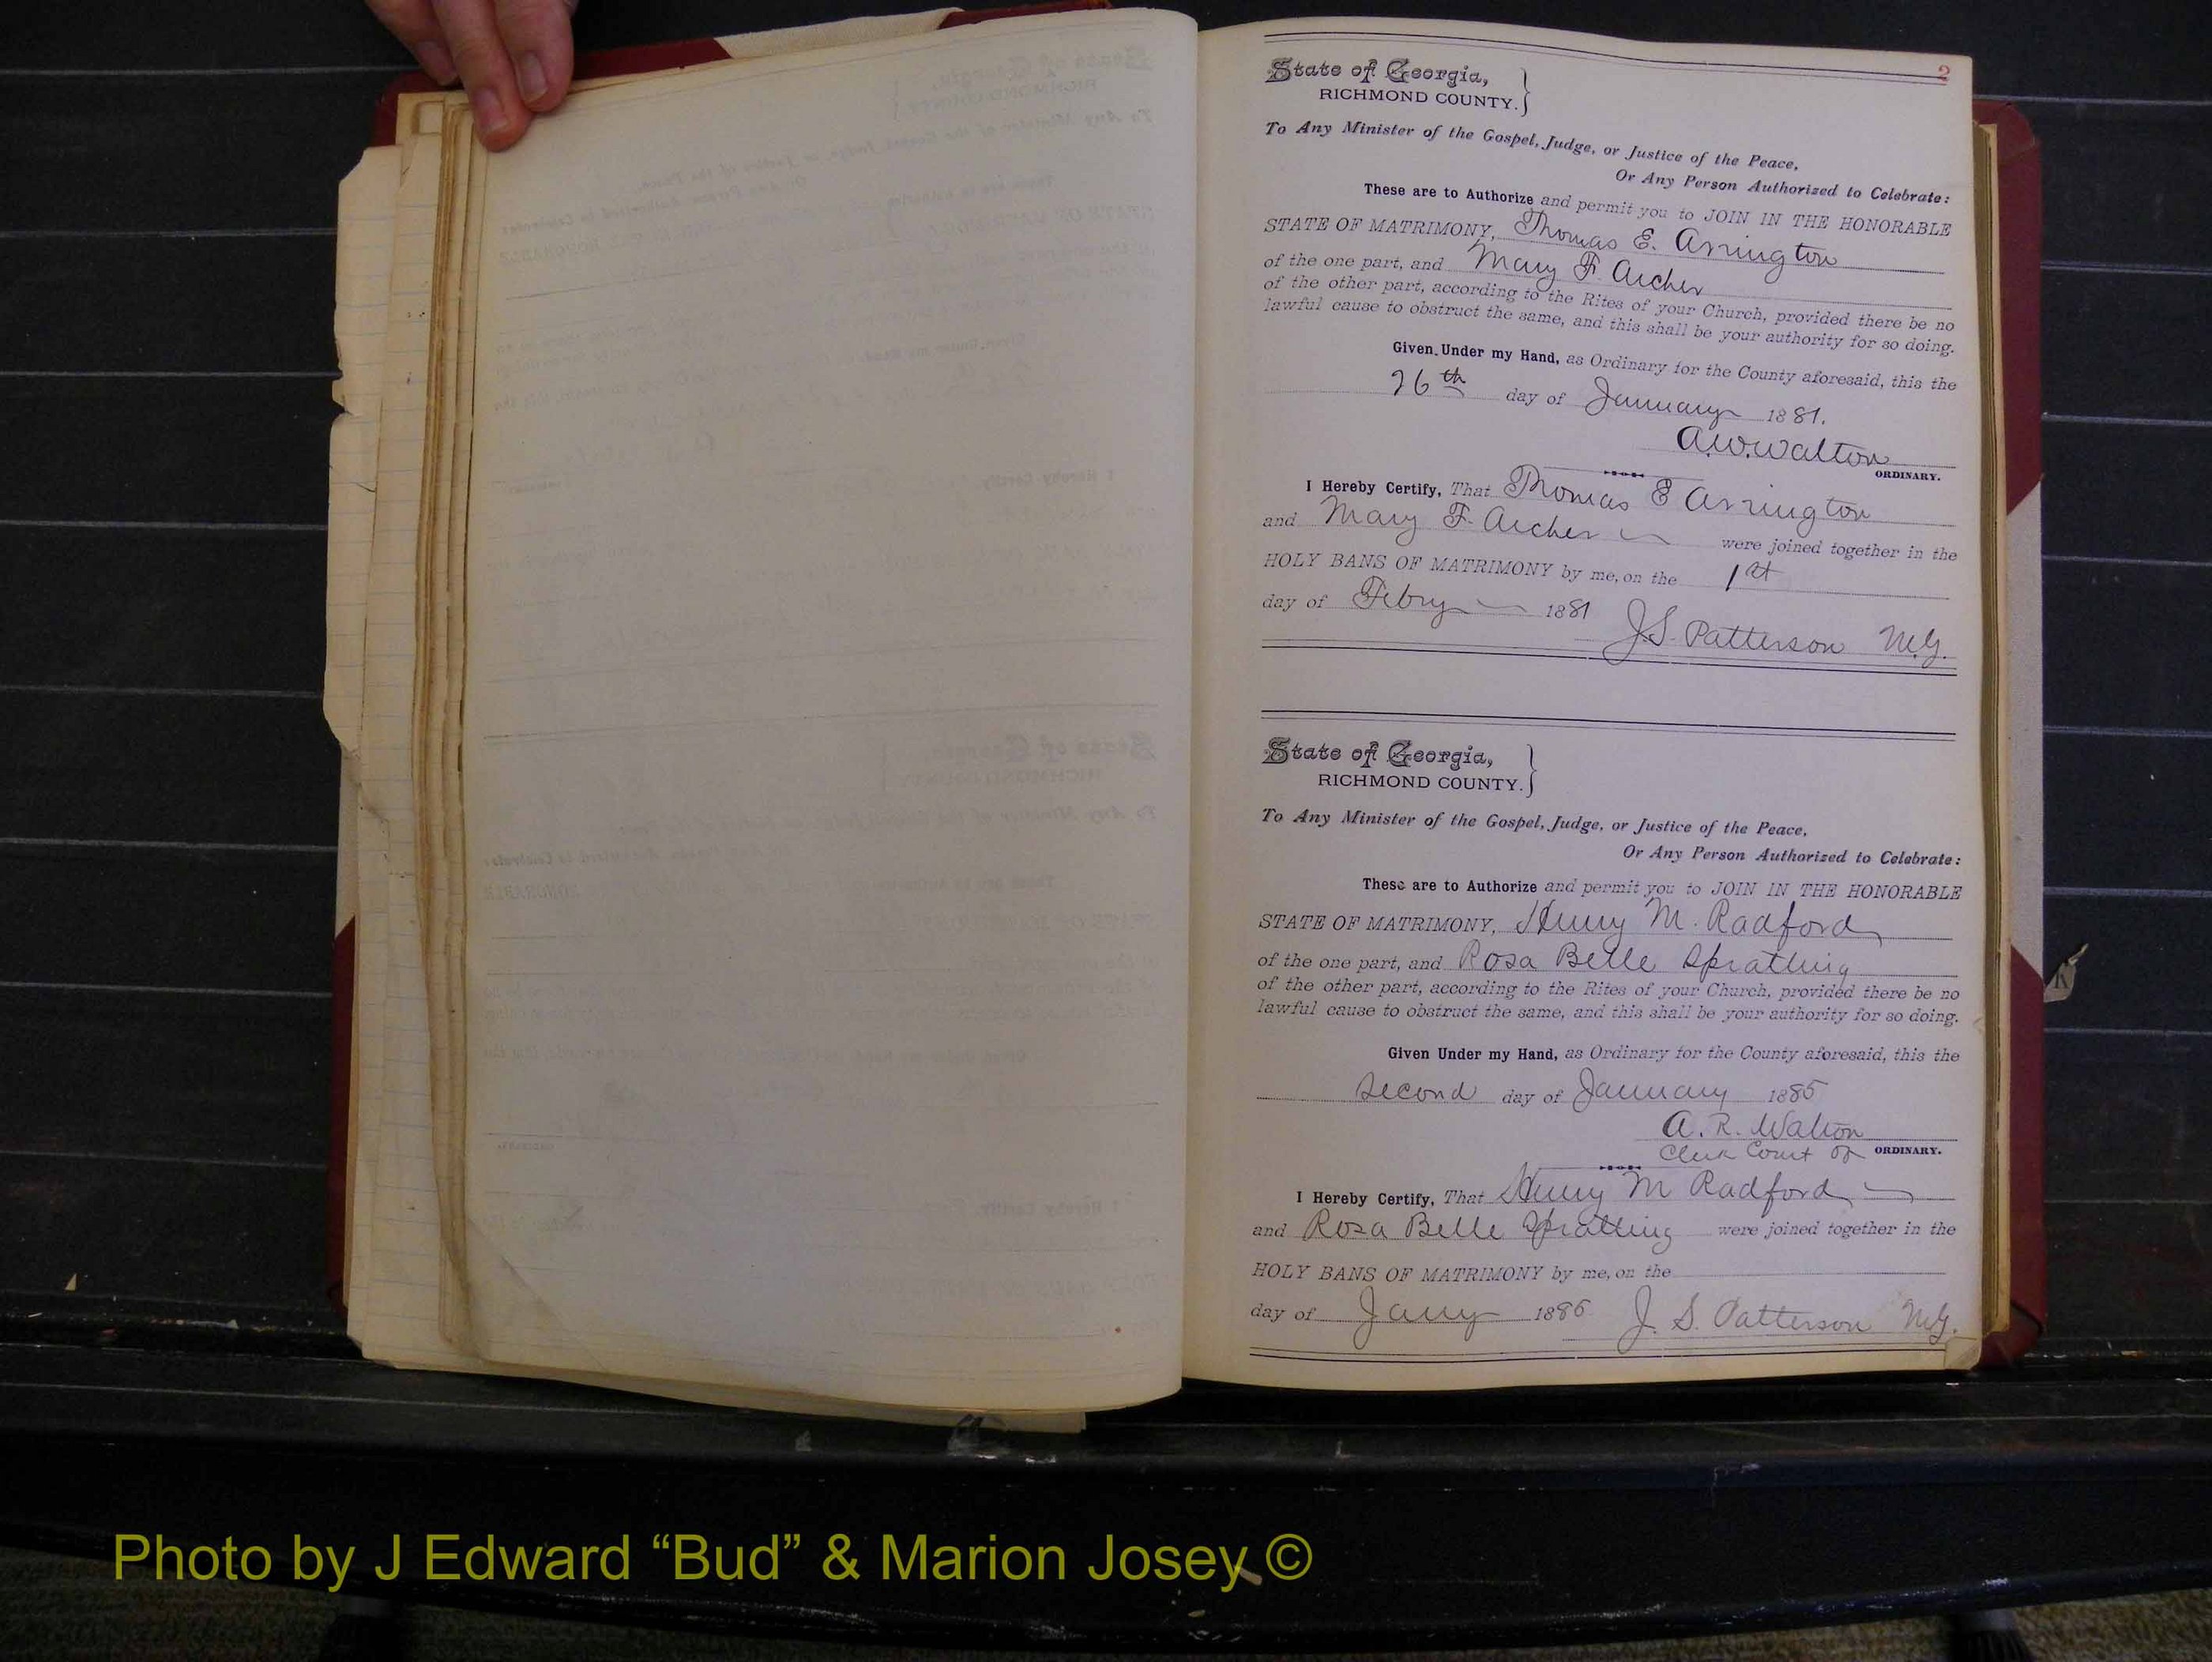 2
State of Georgia,
RICHMOND COUNTY.
To Any Minister of the Gospel, Judge, or Justice of the Peace,
Or Any Person Authorized to Celebrate:
These are to Authorize and permit you to JOIN IN THE HONORABLE
STATE OF MATRIMONY, Thomas E. Arrington
of the one part, and Mary F. Archer
of the other part, according to the Rites of your Church, provided there be no
lawful cause to obstruct the same, and this shall be your authority for so doing.
Given Under my Hand, as Ordinary for the County aforesaid, this the
26th day of January 1881.
A.W. Walton
ORDINARY.
I Hereby Certify, That Thomas E Arrington
and Mary F. Archer were joined together in the
HOLY BANS OF MATRIMONY by me, on the 1st
day of Febry 1881
J.S. Patterson M.G.
State of Georgia,
RICHMOND COUNTY.
To Any Minister of the Gospel, Judge, or Justice of the Peace,
Or Any Person Authorized to Celebrate:
These are to Authorize and permit you to JOIN IN THE HONORABLE
STATE OF MATRIMONY, Henry M. Radford
of the one part, and Rosa Belle Spratling
of the other part, according to the Rites of your Church, provided there be no
lawful cause to obstruct the same, and this shall be your authority for so doing.
Given Under my Hand, as Ordinary for the County aforesaid, this the
Second day of January 1885
A. R. Walton
Clerk Court of ORDINARY.
I Hereby Certify, That Henry M Radford
and Rosa Belle Spratling were joined together in the
HOLY BANS OF MATRIMONY by me, on the
day of Jany 1885 J. S. Patterson M.G.
Photo by J Edward “Bud” & Marion Josey ©